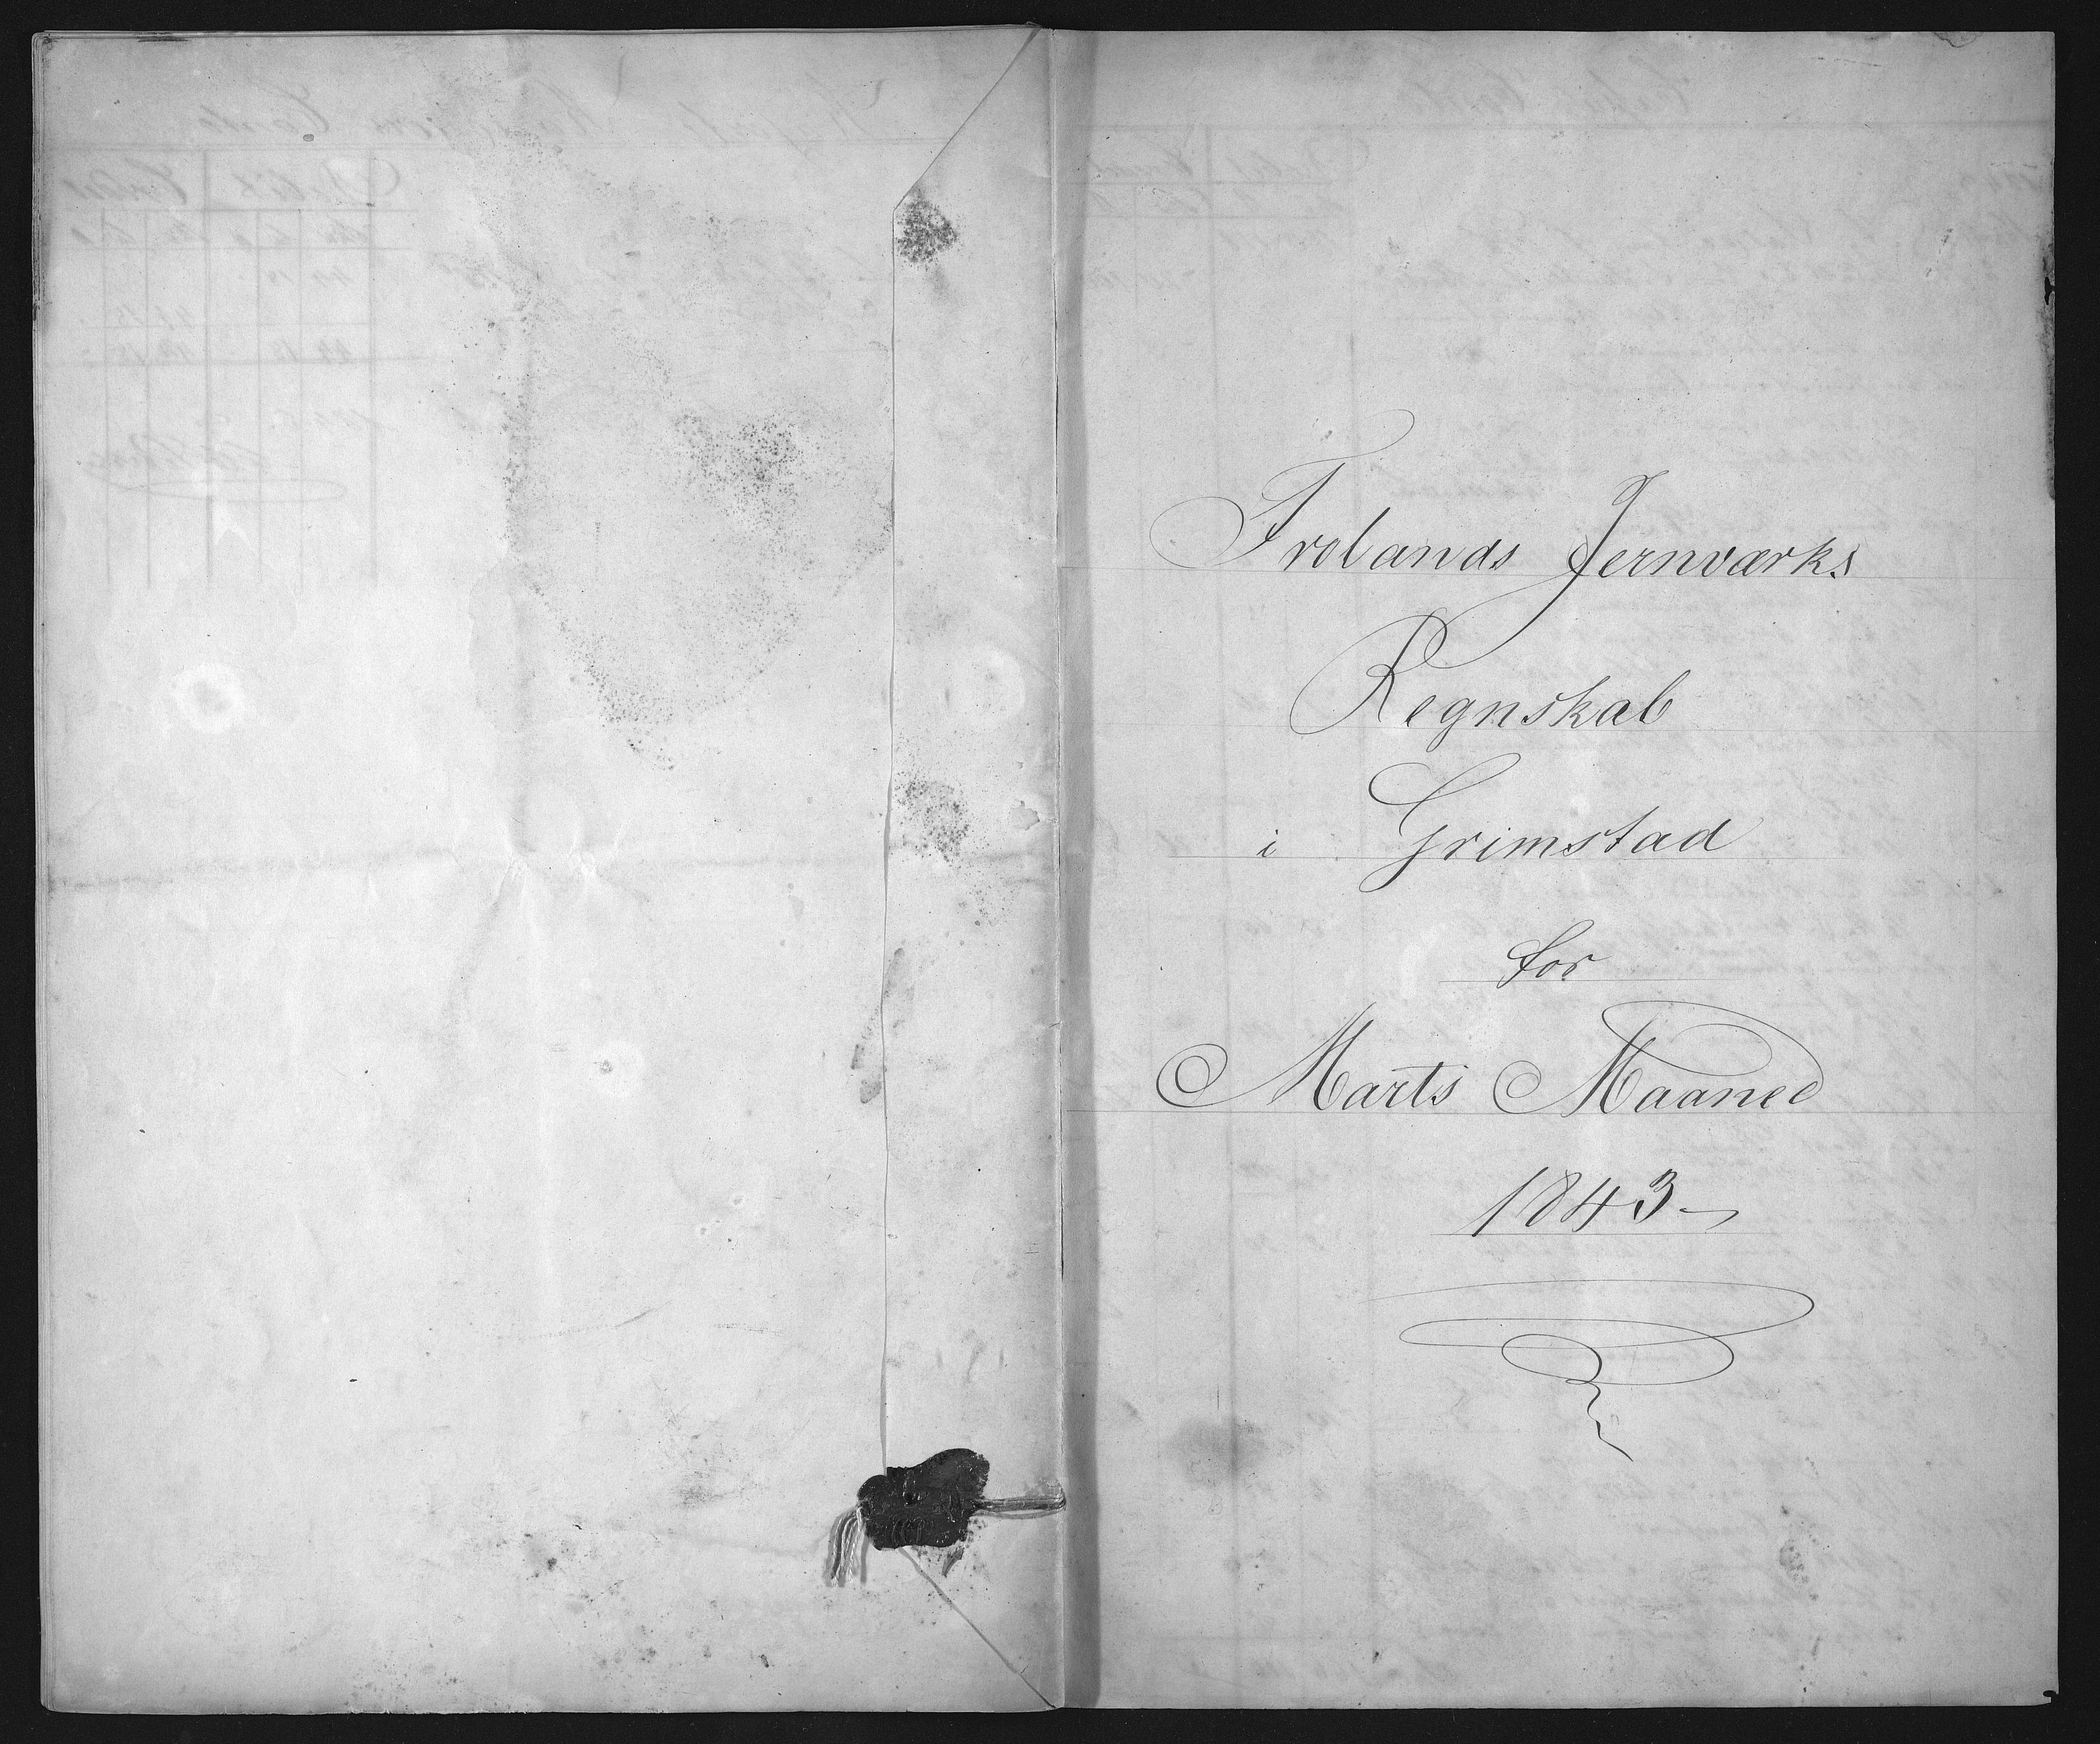 Frolands Jernværks
Regnskab
i Grimstad
for
Marts Maaned
1843